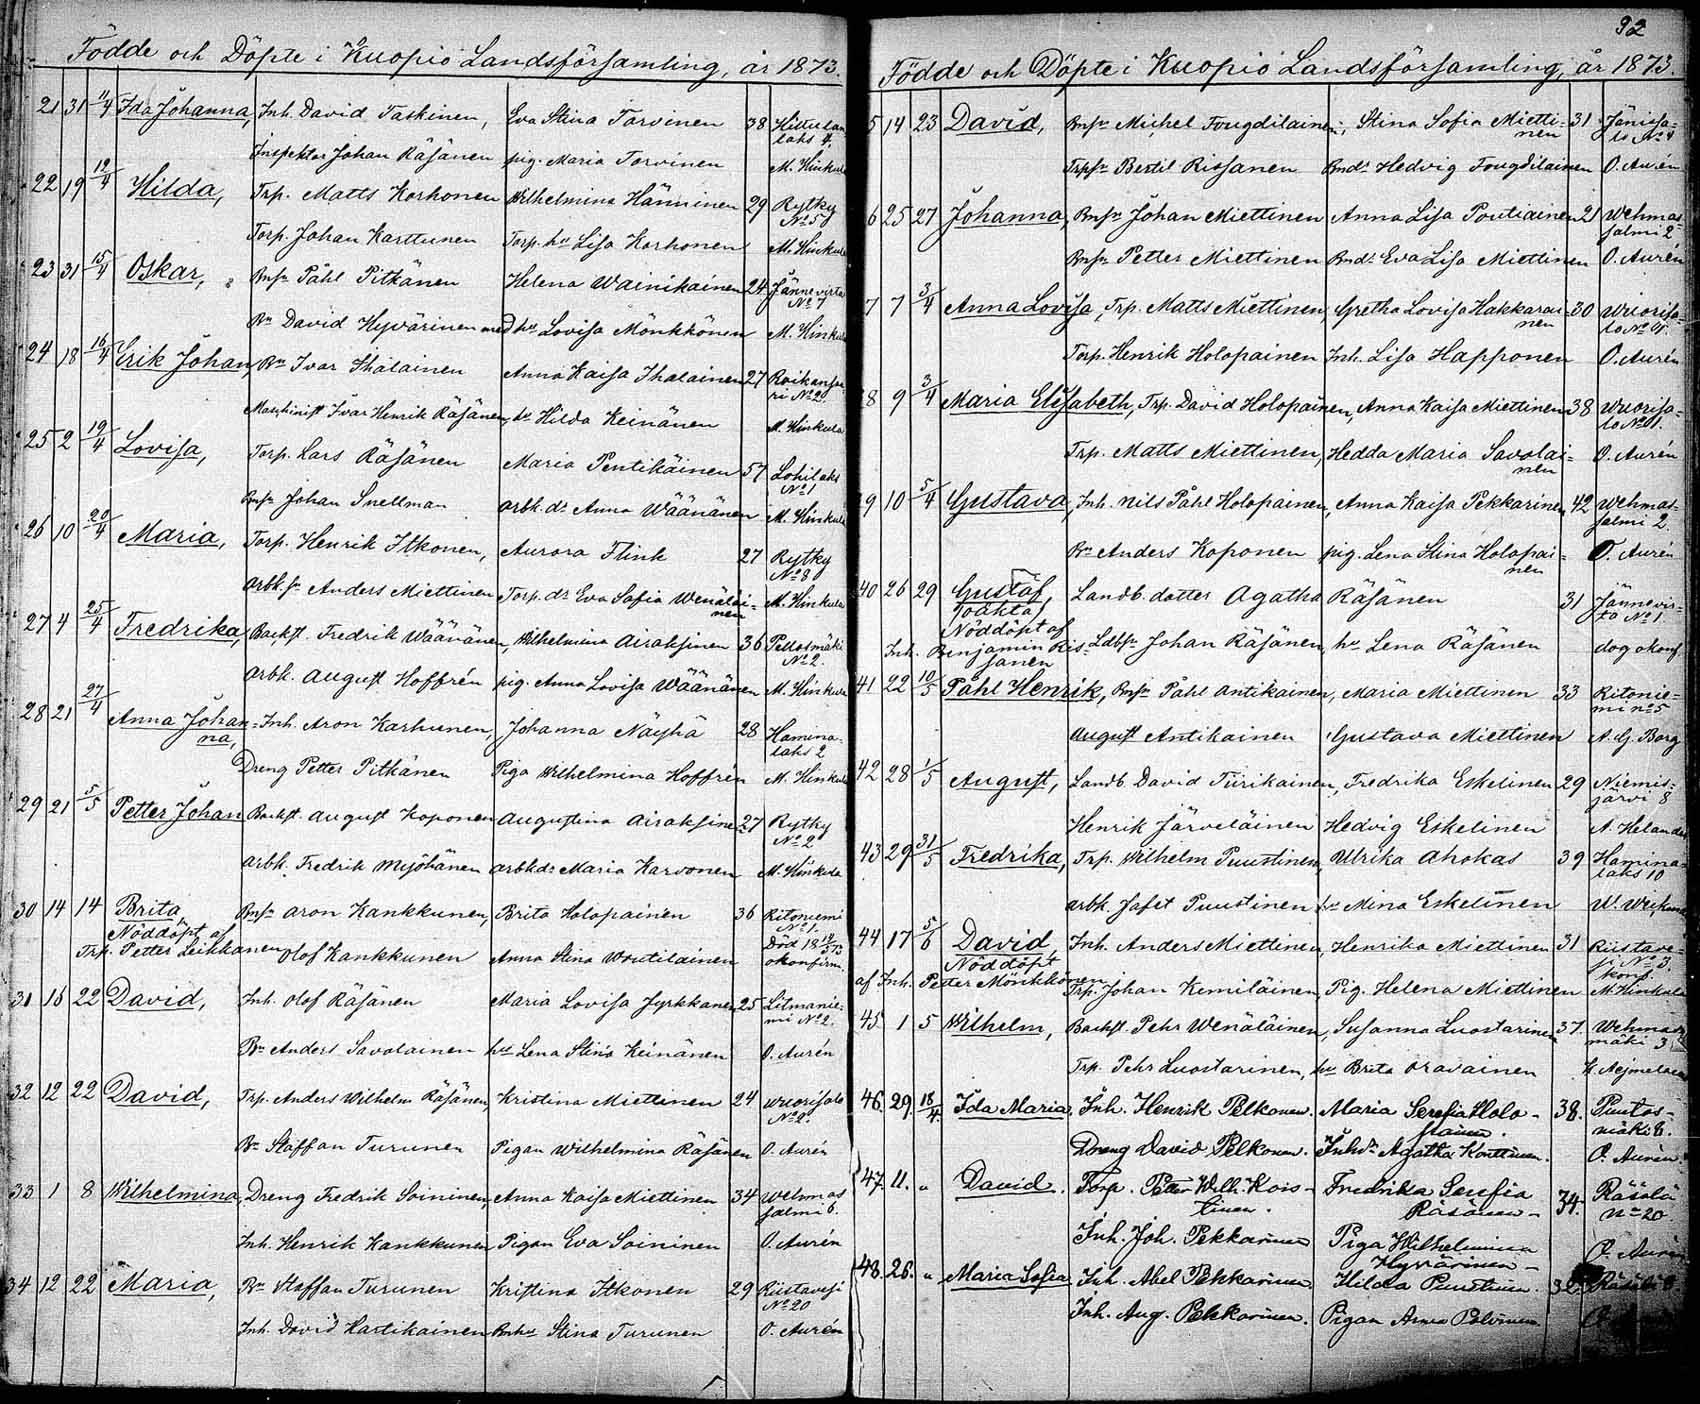 Födde och Döpte i Kuopio Landsförsamling, år 1873.
21 31 11/4 Ida Johanna, Inh. David Taskinen, Eva Stina Tarvinen 38
laks 4.
Inspektor Johan Räsänen pig. Maria Tarvinen M. Hinkula
22 19 12/4 Hilda, Trp. Matts Korhonen Wilhelmina Hänninen 29 Rytky
No 5
Torp. Johan Karttunen Torp. hu Lisa Korhonen M. Hinkula
23 31 15/4 Oskar, Bnfr Påhl Pitkänen Helena Wainikainen 24 Jännevirta
No 7
Bn David Hyvärinen med hu Lovisa Mönkkönen M. Hinkula
24 18 16/4 Erik Johan, Bn Ivar Ihalainen Anna Kaisa Ihalainen 27
ri No 2.
Maschinist Ivar Henrik Räsänen, dr Hilda Keinänen M. Hinkula
25 2 19/4 Lovisa, Torp. Lars Räsänen Maria Pentikäinen 37 Lohilaks
No 1
Bnfr Johan Snellman arbk. dr Anna Wäänänen M. Hinkula
26 10 20/4 Maria, Torp. Henrik Itkonen, Aurora Flink 27 Rytky
No 8
arbk. fr Anders Miettinen Torp. dr Eva Sofia Wenäläi-
nen M. Hinkula
27 4 25/4 Fredrika, Backst. Fredrik Wäänänen, Wilhelmina Airaksinen 36 Pellosmäki
No 2.
arbk. August Hoffrén pig. Anna Lovisa Wäänänen M. Hinkula
28 21 27/4 Anna Johan-
na, Inh. Aron Karhunen, Johanna Näyhä 28 Hamina-
laks 2
Dreng Petter Pitkänen Piga Wilhelmina Hoffrén M. Hinkula
29 21 5/5 Petter Johan Backst. August Koponen Augustina Airaksinen 27 Rytky
No 2
arbk. Fredrik Myöhänen arbk dr Maria Karvonen M. Hinkula
30 14 14 Brita Bnfr Aron Kankkunen, Brita Holopainen 36 Ritoniemi
No 1.
Nöddöpt af
Trp. Petter Leikkanen Olof Kankkunen Anna Stina Woutilainen Död
okonfirm.
31 16 22 David, Inh. Olof Räsänen Maria Lovisa Jyrkkanen 25 Litmanie-
mi No 2.
Bn Anders Savolainen hu Lena Stina Keinänen O. Aurén
32 12 22 David, Trp. Anders Wilhelm Räsänen, Kristina Miettinen 24 Wuorisalo
No 2.
Bn Staffan Turunen Pigan Wilhelmina Räsänen O. Aurén
33 1 8 Wilhelmina, Dreng Fredrik Soininen, Anna Kaisa Miettinen 34 Wehmas
salmi 6.
Inh. Henrik Kankkunen Pigan Eva Soininen O. Aurén
34 12 22 Maria, Bn Staffan Turunen Kristina Itkonen 29 Riistavesi
No 20
Inh. David Hartikainen Bnhu Stina Turunen O. Aurén
92
Födde och Döpte i Kuopio Landsförsamling, år 1873.
5 14 23 David, Bnfr Michel Fougdilainen, Stina Sofia Mietti-
nen 31 Jänissa-
lo No 4
Trpfr Bertil Rissanen Bndr Hedvig Fougdilainen O. Aurén
6 25 27 Johanna, Bnfr Johan Miettinen Anna Lisa Poutiainen 21 Wehmas-
salmi 2
Bnfr Petter Miettinen Bndr Eva Lisa Miettinen O. Aurén
7 7 3/4 Anna Lovisa, Trp. Matts Miettinen, Gretha Lovisa Hakkarai-
nen 30 Wuorisa-
lo No 4.
Torp. Henrik Holopainen Inh. Lisa Happonen O. Aurén
8 9 3/4 Maria Elisabeth, Trp. David Holopainen, Anna Kaisa Miettinen 38 Wuorisa-
lo No 1.
Trp. Matts Miettinen, Hedda Maria Savolai-
nen O. Aurén
9 10 5/4 Gustava, Inh. Nils Påhl Holopainen, Anna Kaisa Pekkarinen, 42 Wehmas-
salmi 2
Bn Anders Koponen pig. Lena Stina Holopai-
nen O. Aurén
40 26 29 Gustaf, Landb. dotter Agatha Räsänen 31 Jännevir-
ta No 1.
oäkta
Nöddöpt af
Inh. Benjamin Ris-
sanen Ldbfr Johan Räsänen, hu Lena Räsänen dog okonf.
41 22 10/5 Påhl Henrik, Bnfr Påhl Antikainen, Maria Miettinen 33 Ritonie-
mi no 5
August Antikainen Gustava Miettinen A. G. Borg
42 28 1/5 August, Landb. David Tiirikainen, Fredrika Eskelinen 29 Niemis-
järvi 8
Henrik Järveläinen Hedvig Eskelinen A. Helander
43 29 31/5 Fredrika, Trp. Wilhelm Puustinen, Ulrika Ahokas 39 Hamina-
laks 10
arbk. Jafet Puustinen hu Mina Eskelinen
44 17 5/6 David, Inh. Anders Miettinen, Henrika Miettinen 31 Riistave-
si No 3.
Nöddöpt konf.
af Inh. Petter Mönkkönen Trp. Johan Kemiläinen, Pig. Helena Miettinen M. Hinkula
45 1 5 Wilhelm, Backst. Pehr Wenäläinen, Susanna Luostarinen 37. Wehmas
mäki 3
Trp. Pehr Luostarinen, hu Brita Oravainen
46. 29. 18/4. Ida Maria. Inh. Henrik Pelkonen. Maria Serefia Holo-
painen. 38. Puutos-
mäki 6.
Dreng David Pelkonen. Inhdr Agatha Konttinen. O. Aurén
47. 11. " David. Torp. Petter Wilh. Kois-
tinen. Fredrika Serefia
Räsänen. 34. Räsälä
no 20.
Inh. Joh. Pekkarinen Piga Wilhelmina
Hyvärinen O. Aurén
48. 26. " Maria Sofia Inh. Abel Pekkarinen. Hilda Puustinen. 32.
Inh. Aug. Pekkarinen. Pigan Anna Polvinen